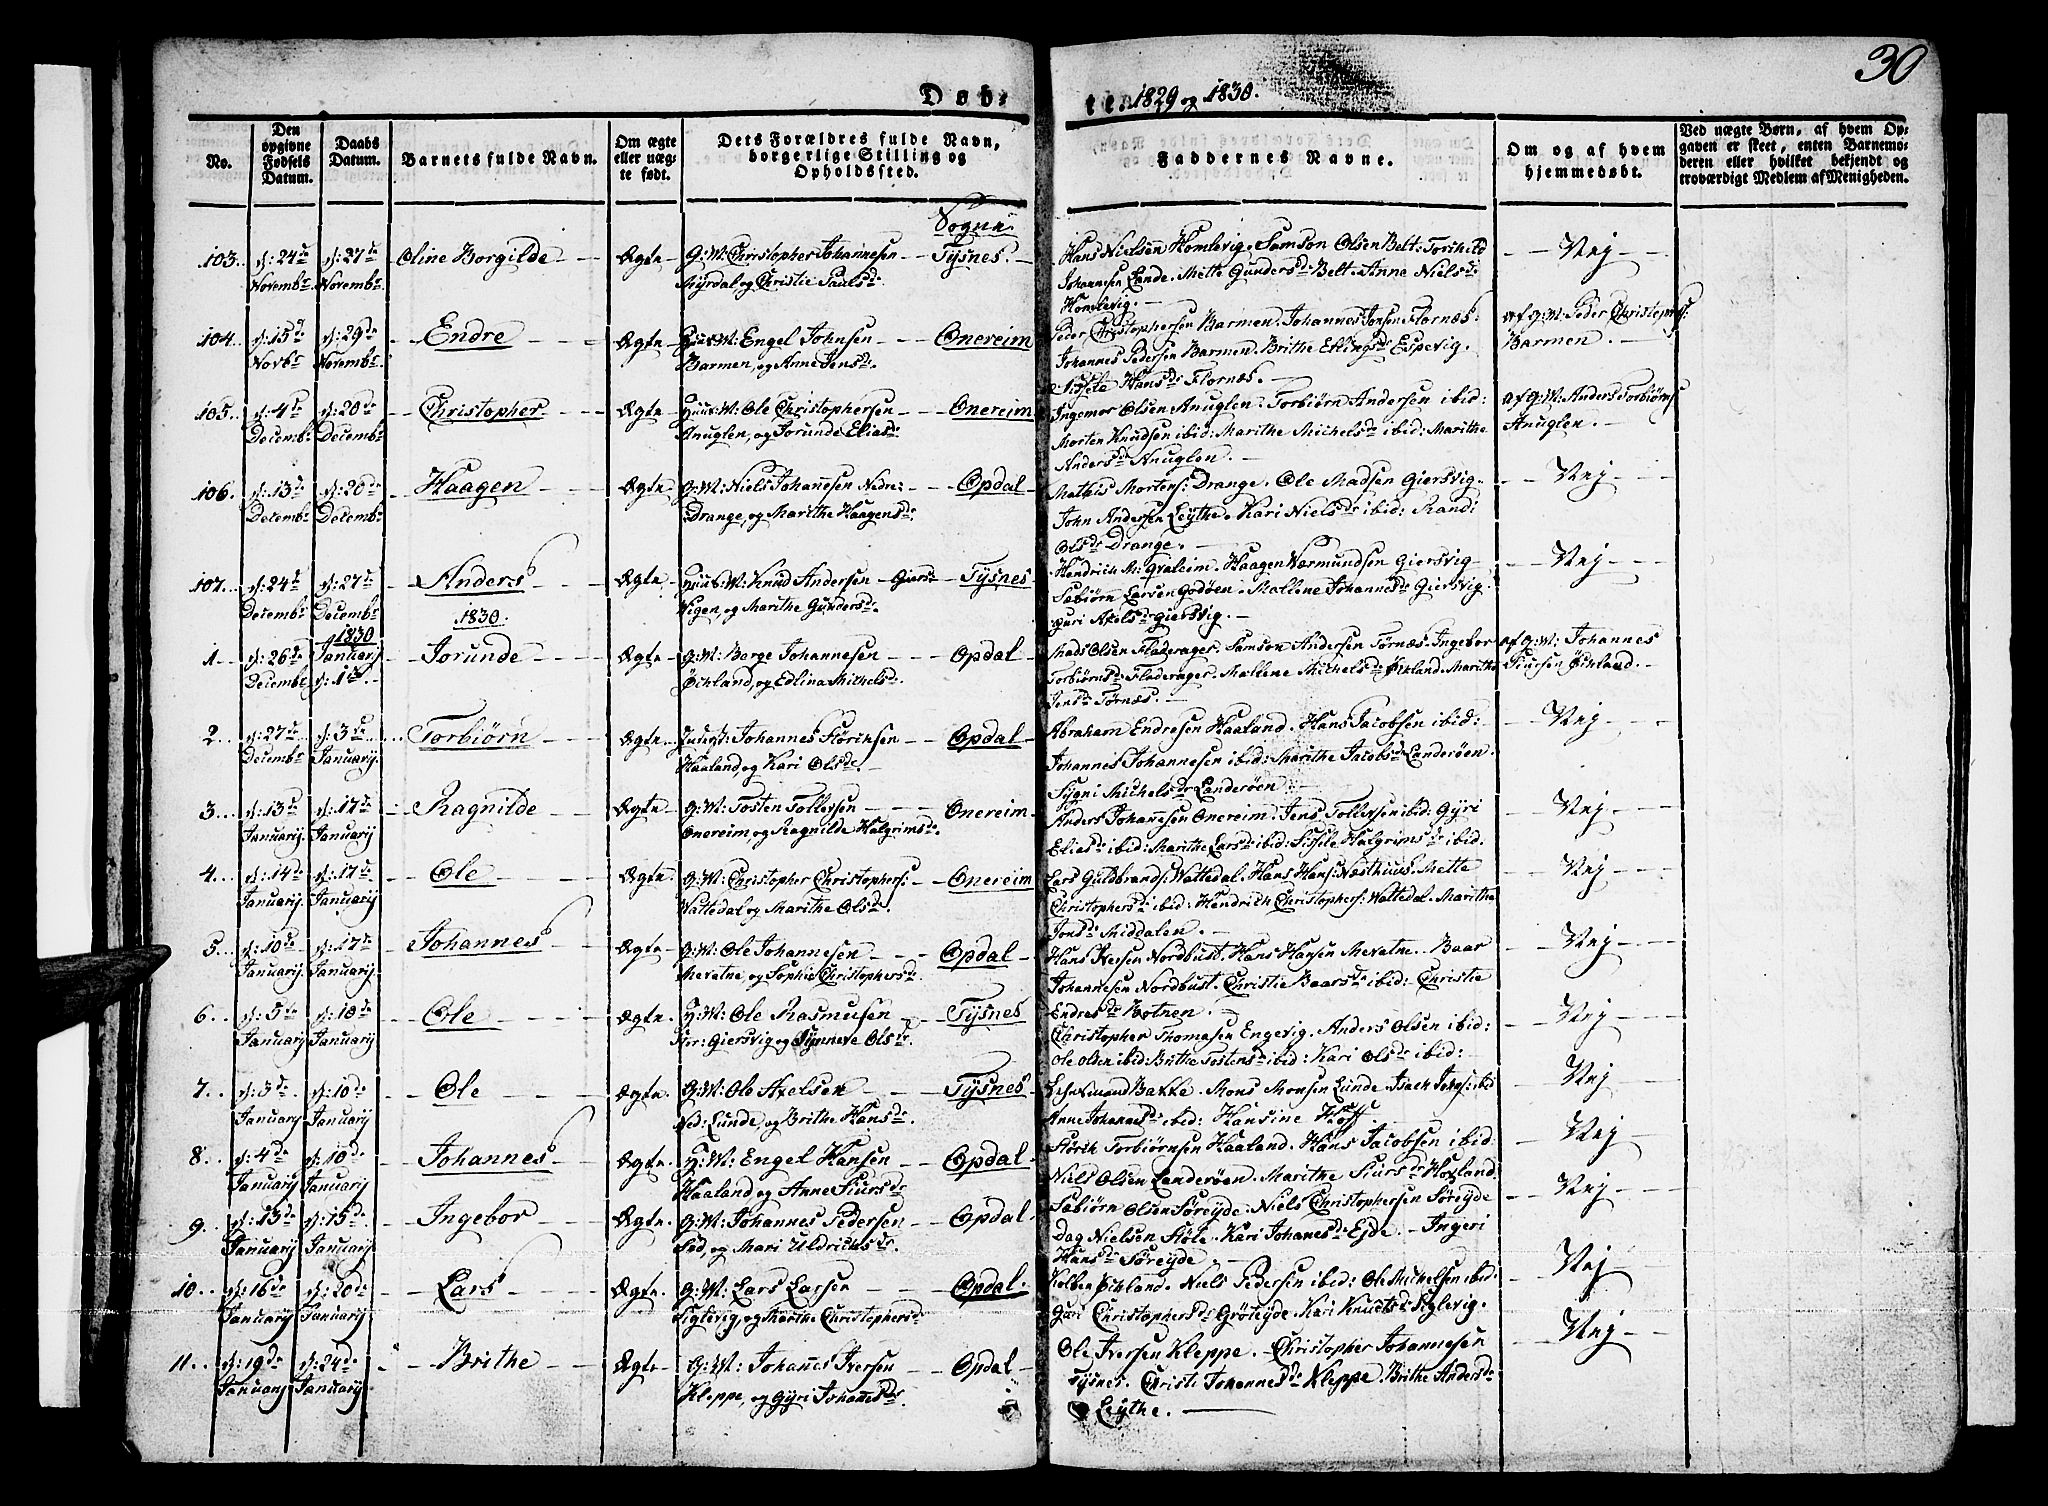 30
Døb-
te 1829 og 1830.
No.
Den opgivne Fødsels Datum.
Daabs Datum.
Barnets fulde Navn.
Om ægte eller uægte født.
Dets Forældres fulde Navn, borgerlige Stilling og Opholdssted.
Faddernes Navne.
Om og af hvem hjemmedøbt.
Ved uægte Børn, af hvem Opgaven er skeet, enten Barnemoderen eller hvilket bekjendt og troværdigt Medlem af Menigheden.
Sogn
103. d: 24de Novembr d: 27de Novembr Oline Borgilde Ægte G:M: Christopher Johannesen Tysnes.
Myrdal og Christie Paulsd:
Hans Nielsen Homlevig. Samson Olsen Belt: Torchild
Johannesen Lande. Mette Gundersd: Belt. Anne Nielsd:
Homlevig.
Nej
104. d: 15de Novbr d: 29de Novembr Endre Ægte Huus M: Engel Johnsen Onereim
Barmen, og Anne Jensd:
Peder Christophersen Barmen. Johannes Jonsen Flornæs.
Johannes Pedersen Barmen. Brithe Etlingsd: Espevig.
Hansd: Flornæs.
af G:M: Peder Christophs:
Barmen.
105. d: 4de Decembr d: 20de Decembr Christopher Ægte Huus M: Ole Christophersen Onereim
Anuglen, og Jorunde Eliasd:
Ingemor Olsen Anuglen. Torbiørn Andersen ibid:
Morten Knudsen ibid: Marithe Michelsd: ibid: Marithe
Andersd: Anuglen.
af G:M: Anders Torbiørns
Anuglen.
106. d: 13de Decembr d: 26de Decembr Haagen Ægte G:M: Niels Johanesen Nedre: Opdal
Drange, og Marithe Haagensd:
Mathis Mortens: Drange. Ole Madsen Giersvig.
John Andersen Leythe. Kari Nielsd: ibid: Randi
Olsd: Drange.
Nej
107. d: 24de Decembr d: 27de Decembr Anders Ægte Huus M: Knud Andersen Giers- Tysnes
vigen, og Marithe Gundersd:
Hendrich M: Gvaleim. Haagen Værmundsen Giersvig
Sæbiørn Larsen Godøen. Mallene Johannesd: Giersvig.
Guri Axelsd: Giersvig.
Nej
1830.
1830
1 d: 26de Decembr January d: 1ste Jorunde Ægte G:M: Børge Johannesen Opdal
Øchland, og Edlina Michelsd:
Mads Olsen Fladerager. Samson Andersen Tørnæs. Ingebor
Torbiørnsd: Fladerager. Mallene Michelsd: Øchland. Marithe
Jensd: Tørnæs.
af G:M: Johannes
Siursen Øchland.
2 d: 27de Decembr d: 3de January. Torbiørn Ægte Johannes Størchsen Opdal
Haaland, og Kari Olsd:
Abraham Endresen Haaland. Hans Jacobsen ibid:
Johannes Johannesen ibid: Marithe Jacobsd: Landerøen.
Sygni Michelsd: Landerøen
Nej
3 d: 13de January. d: 17de January Ragnilde Ægte G:M: Tosten Tollefsen Onereim
Onereim, og Ragnilde Halgrimsd:
Anders Johanesen Onereim. Jens Tollefsen ibid: Gyri
Eliasd: ibid: Marithe Larsd: ibid: Sissele Halgrimsd: ibid:
Nej
4 d: 14de January. d: 17de January Ole Ægte G:M: Christopher Christophers: Onereim
Vattedal og Marithe Olsd:
Lars Guldbrands: Vattedal. Hans Hans: Næsthuus. Mette
Christophersd: ibid: Hendrich Christophers: Vattedal. Marithe
Jonsd: Middalen.
Nej
5 d: 10de January. d: 17de January. Johannes Ægte G:M: Ole Johannesen Opdal
Mevatne, og Sophie Christophersd:
Hans Iversen Nordbust. Hans Hansen Mevatne. Baar
Johannesen Nordbust. Christie Baarsd: ibid: Christie
Endresd: Botnen.
Nej
6 d: 5te January d: 10de January Ole Ægte H:M: Ole Rasmusen Tysnes
Stor: Giersvig og Synneve Olsd:
Christopher Thomasen Engevig. Anders Olsen ibid:
Ole Olsen ibid: Brithe Tostensd: ibid: Kari Olsd: ibid:
Nej
7 d: 3de January d: 10de January Ole Ægte G:M: Ole Axelsen Tysnes
Ned: Lunde, og Brithe Hansd:
Lehnsmand Bakke. Mons Monsen Lunde. Isach Johs: ibid
Anne Johannesd: ibid: Hansine Hoff
Nej
8 d: 4de January d: 10de January Johannes Ægte H:M: Engel Hansen Opdal
Haaland og Anne Siursd:
Størch Torbiørnsen Haaland. Hans Jacobsen ibid:
Niels Olsen Landerøen. Marithe Siursd: Høyland
Nej
9. d: 13de January d: 15de January Ingebor Ægte G:M: Johannes Pedersen Opdal
Sæd, og Mari Uldrichsd:
Sæbiørn Olsen Søreyde. Niels Christophersen Søreyde
Dag Nielsen Støle. Kari Johanesd: Ejde. Ingeri
Hansd: Søreyde
Nej
10 d: 16de January d: 20de January Lars Ægte. G:M: Lars Larsen Opdal.
Siglevig, og Marthe Christophersd:
Kolben Øchland. Niels Pedersen ibid: Ole Michelsen ibid:
Guri Christophersd: Grøteyde. Kari Knudsd: Siglevig.
Nej
11 d: 19de January d: 24de January Brithe Ægte G:M: Johannes Iversen Opdal
Kleppe, og Gyri Johannesd:
Ole Iversen Kleppe. Christopher Johannesen
Tysnes. Christi Johannesd: Kleppe. Brithe Andersd:
Leythe.
Nej